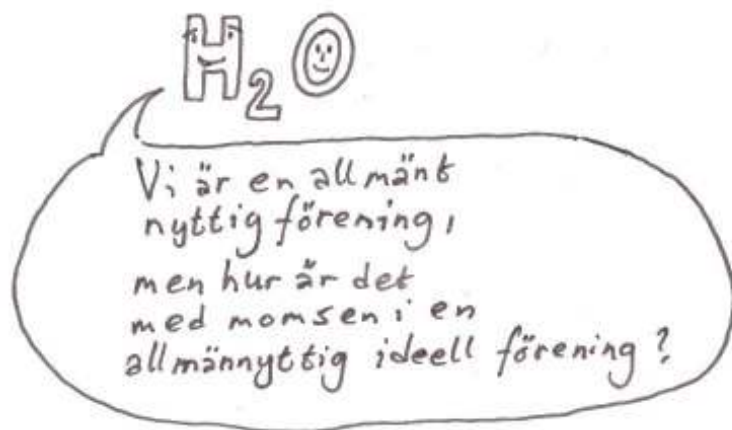 H2O
Vi är en allmänt
nyttig förening,
men hur är det
med momsen i en
allmännyttig ideell förening?